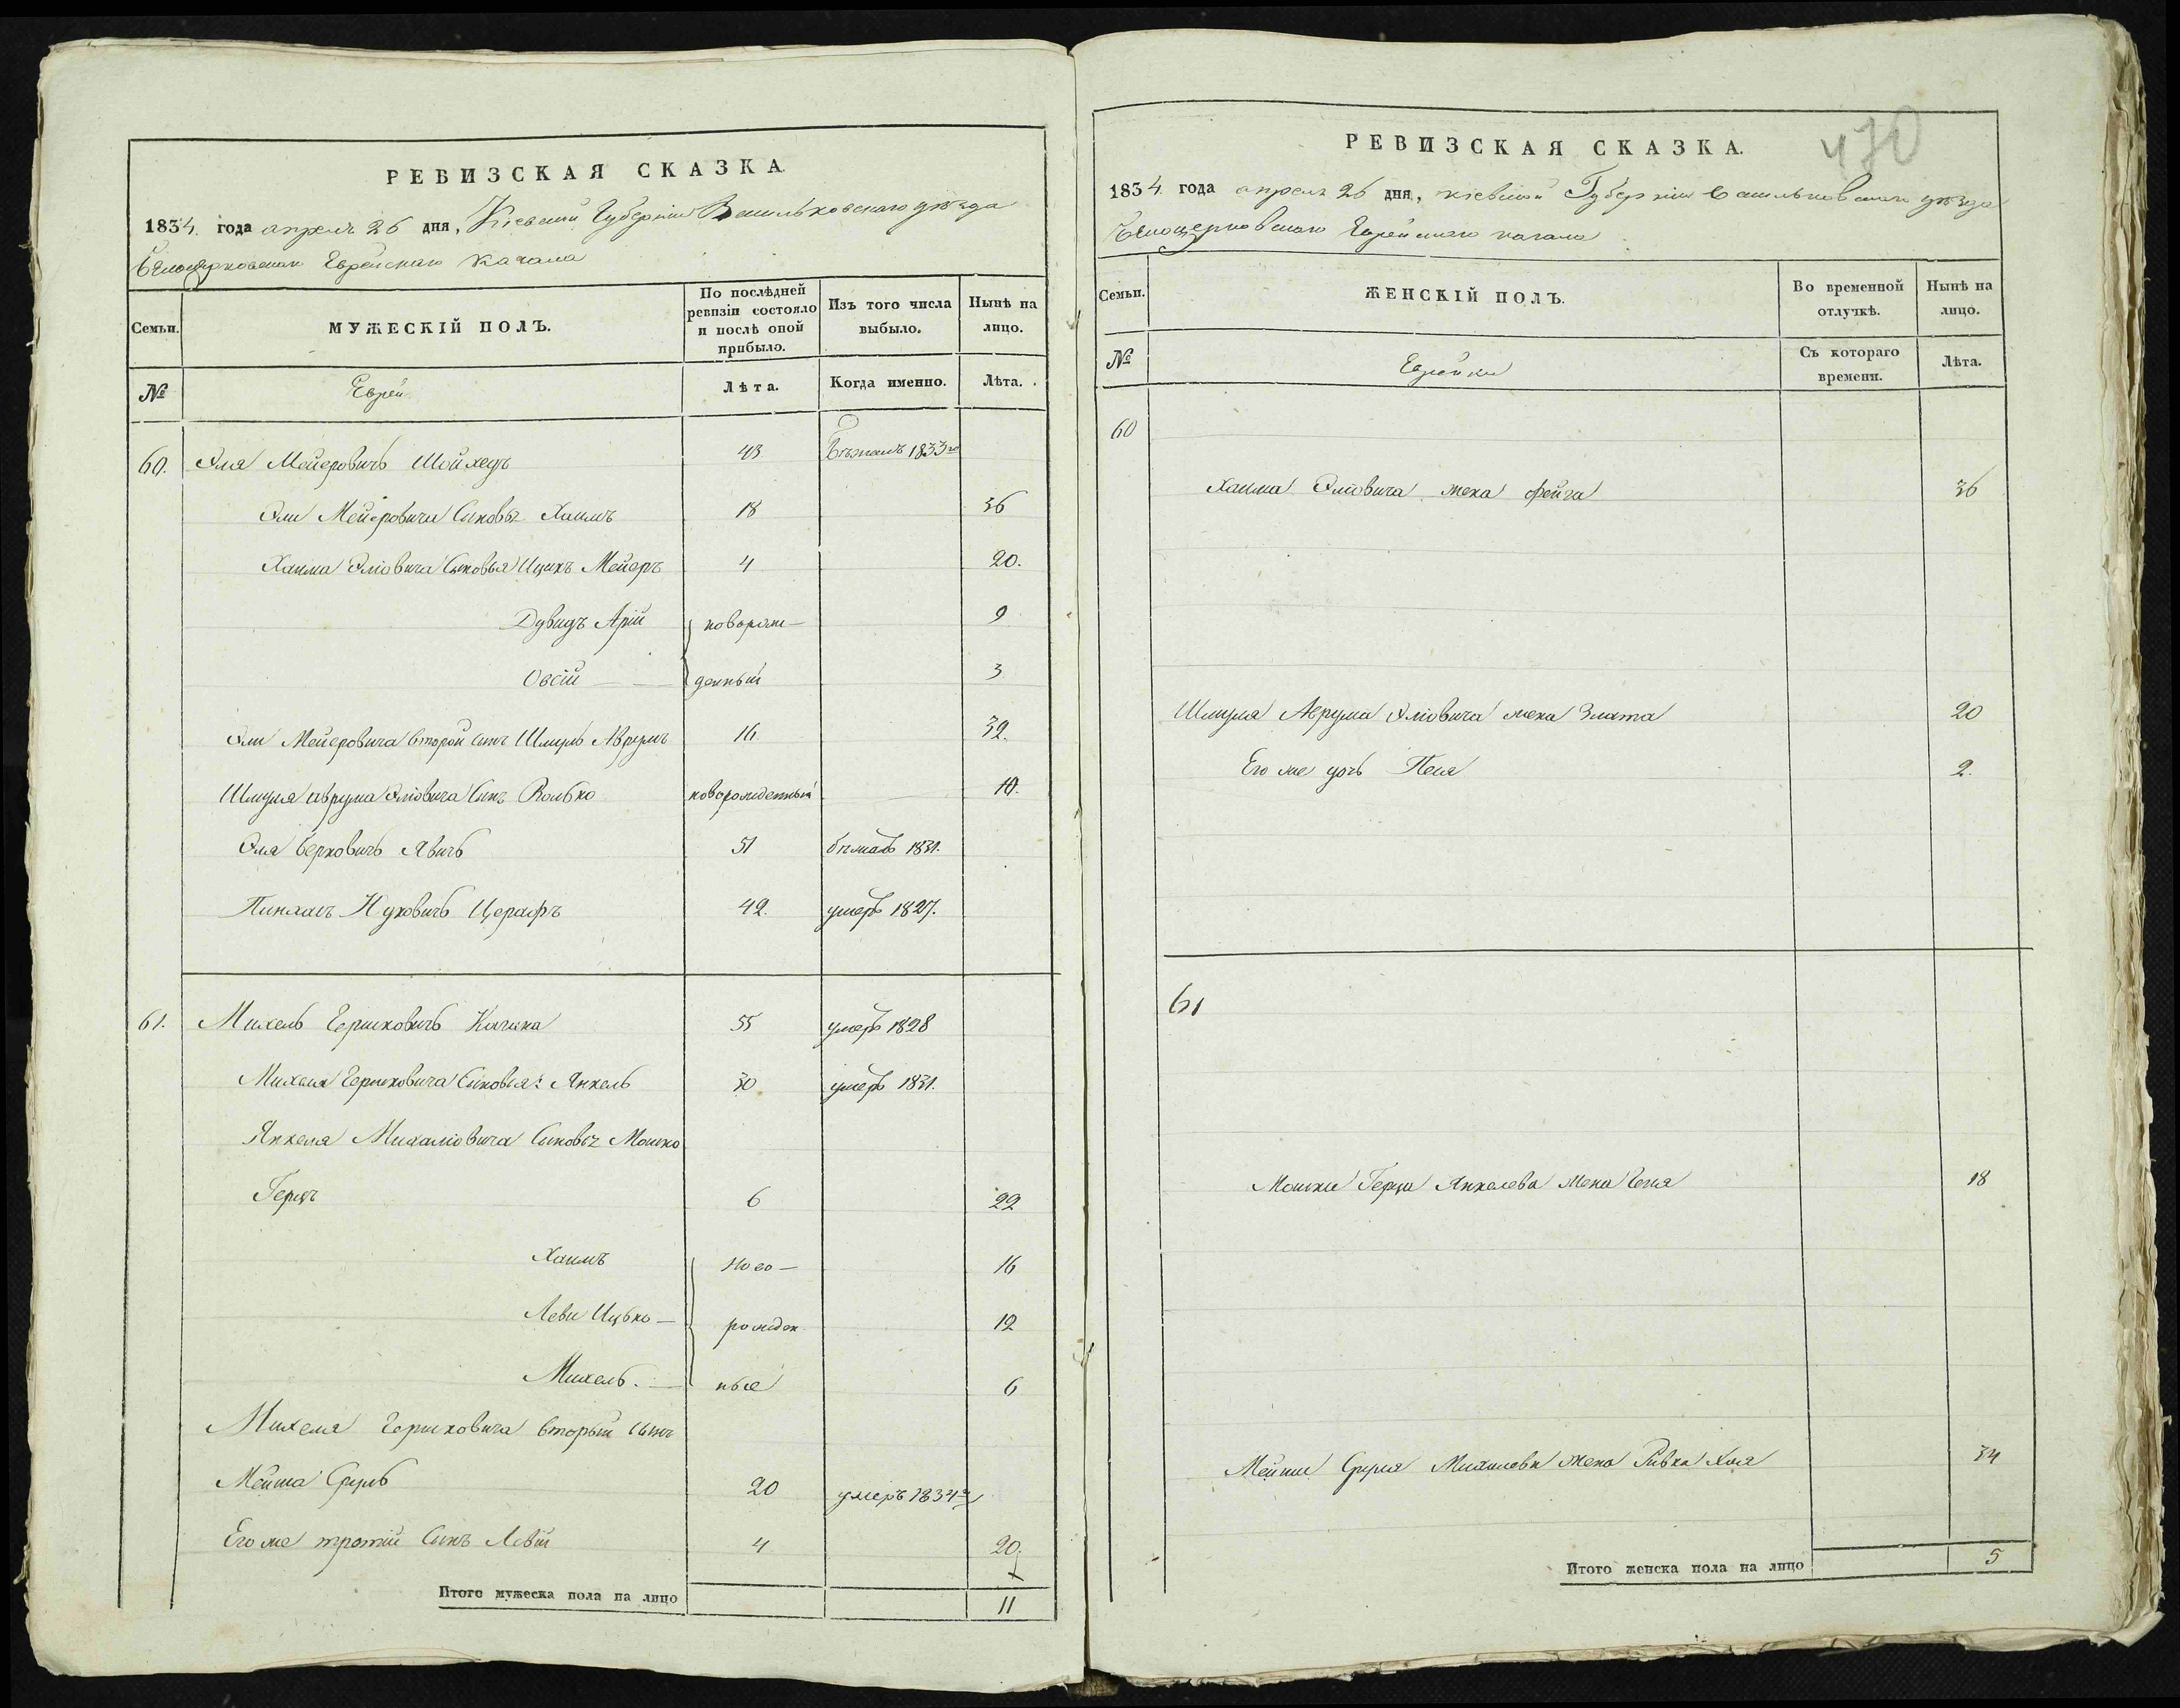 РЕВИЗСКАЯ СКАЗКА
1834. года апреля 26 дня, Кіевской Губерніи Васильковскаго уѣзда
Бѣлоцерковскаго Еврейскаго Кагала
Семьи.
МУЖЕСКІЙ ПОЛЪ.
По послѣдней ревизіи состояло и послѣ оной прибыло.
Изъ того числа выбыло.
Нынѣ на лицо.
№
Еврей
Лѣта.
Когда именно.
Лѣта.
60. Эля Мейеровичъ Шойхедъ 43 Бѣжалъ 1833го
Эли Мейеровича Сыновья Хаимъ 18 36
Хаима Эліовича Сыновья Ицикъ Мейеръ 4 20.
Дувидъ Арій новорож— 9
Овсій — денный 3
Эли Мейеровича второй сынъ Шмуль Аврумъ 16 32.
Шмуля Аврума Эліовича Сынъ Волько новорожденный 10.
Эля Берковичъ 51 бѣжалъ 1831.
Пинхасъ Нуховичъ Церафъ 42. умеръ 1827.
61. Михель Гершковичъ 55 умеръ 1828
Михеля Гершковича Сыновья: Янкель 30 умеръ 1831.
Янкеля Михаліовича Сыновья Мошко
Герцъ 6 22
Хаимъ Ново— 16
Леви Ицко — рожден 12
Михель. — ные 6
Михеля Гершковича вторый сынъ
Мейша Сруль 20 умеръ 1834го
Его же третій Сынъ Левій 4 20.
Итого мужеска пола на лицо 11
470
РЕВИЗСКАЯ СКАЗКА.
1834. года апреля 26 дня, кіевской Губерніи Васильковскаго уѣзда
Бѣлоцерковскаго Еврейскаго кагала
Семьи.
ЖЕНСКІЙ ПОЛЪ.
Во временной отлучкѣ.
Нынѣ на лицо.
№
Еврейки
Съ котораго времени.
Лѣта.
60
Хаима Эліовича жена Фейга 36
Шмуля Аврума Эліовича жена Злата 20
Его же дочь Песя 2.
61
Мошки Герца Янкелева жена 18
Мейши Сруля Михелева жена Ривка Хая 34
Итого женска пола на лицо 5